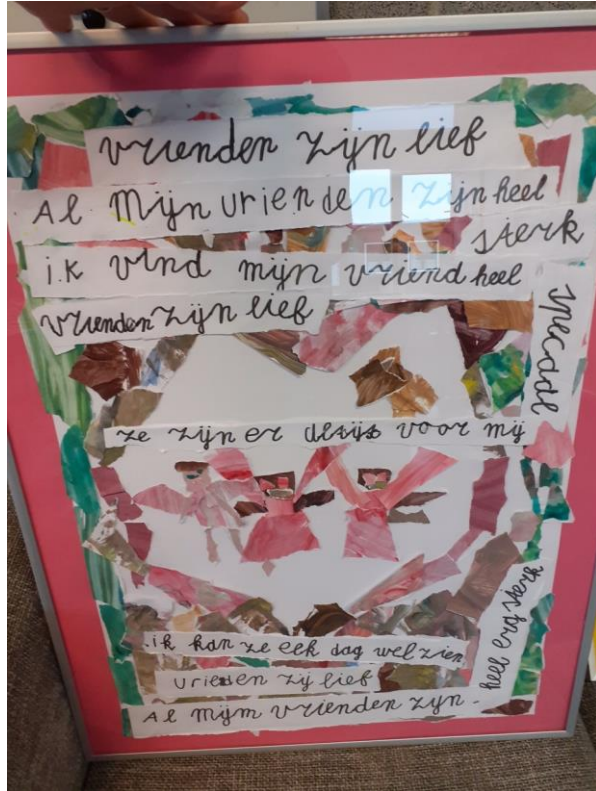 vrienden zijn lief
Al mijn vrienden zijn heel
sterk
ik vind mijn vriend heel
speciaal
vrienden zijn lief
ze zijn er altijt voor mij
ik kan ze elk dag wel zien
vrienden zij lief
Al mijm vrienden zijn
heel erg sterk